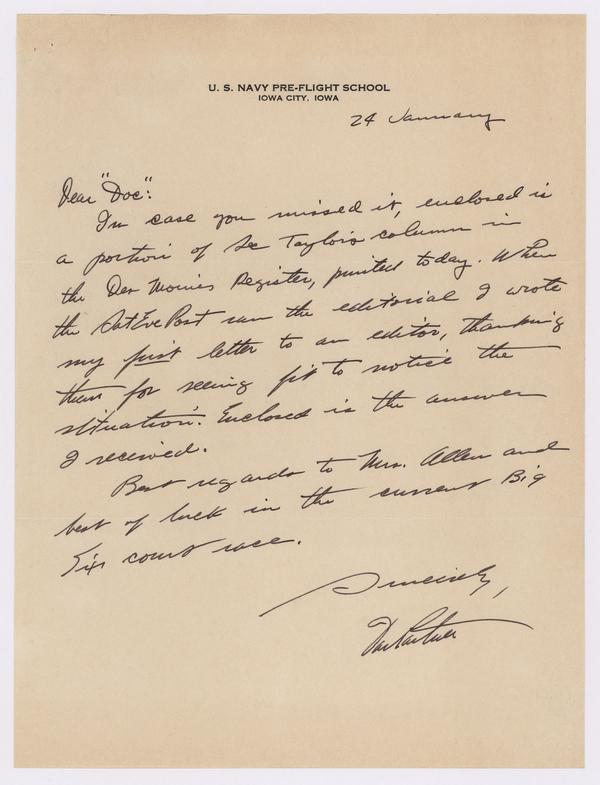 U. S. NAVY PRE-FLIGHT SCHOOL
IOWA CITY, IOWA
24 January
Dear "Doc":
In case you missed it, enclosed is
a portion of Sec Taylor's column in
the Des Moines Register, printed today. When
the SatEvePost ran the editorial I wrote
my first letter to an editor, thanking
them for seeing fit to notice the
situation. Enclosed is the answer
I received.
Best regards to Mrs. Allen and
best of luck in the current Big
Six court race.
Sincerely,